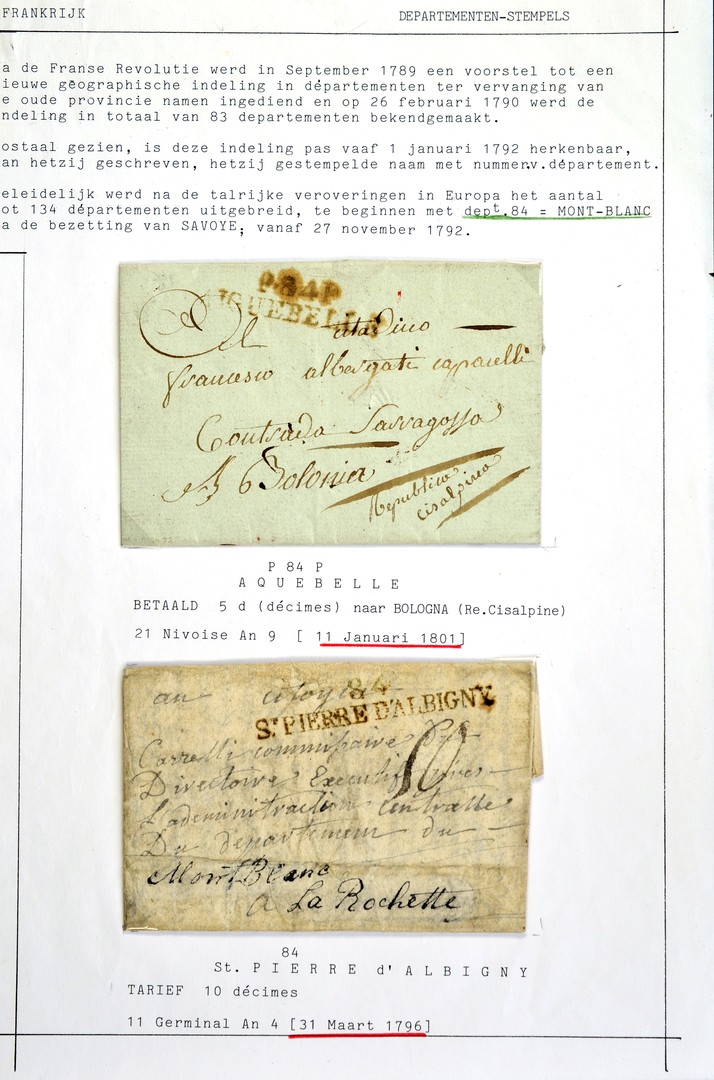 FRANKRIJK
DEPARTEMENTEN-STEMPELS
a de Franse Revolutie werd in September 1789 een voorstel tot een
ieuwe gëographische indeling in départementen ter vervanging van
e oude provincie namen ingediend en op 26 februari 1790 werd de
ndeling in totaal van 83 departementen bekendgemaakt.
ostaal gezien, is deze indeling pas vaaf 1 januari 1792 herkenbaar,
an hetzij geschreven, hetzij gestempelde naam met nummer.v.département.
eleidelijk werd na de talrijke veroveringen in Europa het aantal
ot 134 départementen uitgebreid, te beginnen met dept.84 = MONT-BLANC
a de bezetting van SAVOYE; vanaf 27 november 1792.
P84P
AQUEBELLE
Al citadino
francesco albergati capacelli
Contrada Sarragossa
A Bolonia
Republica
cisalpina
P 84 P
A Q U E B E L L E
BETAALD 5 d (décimes) naar BOLOGNA (Re.Cisalpine)
21 Nivoise An 9 [ 11 Januari 1801]
84
au citoyen
ST PIERRE D'ALBIGNY
Carrelli commissaire du
10
Directoire Executif pres
L'administraction Centralle
Du departement du
Mont Blanc
a La Rochette
84
St. P I E R R E d' A L B I G N Y
TARIEF 10 décimes
11 Germinal An 4 [31 Maart 1796]